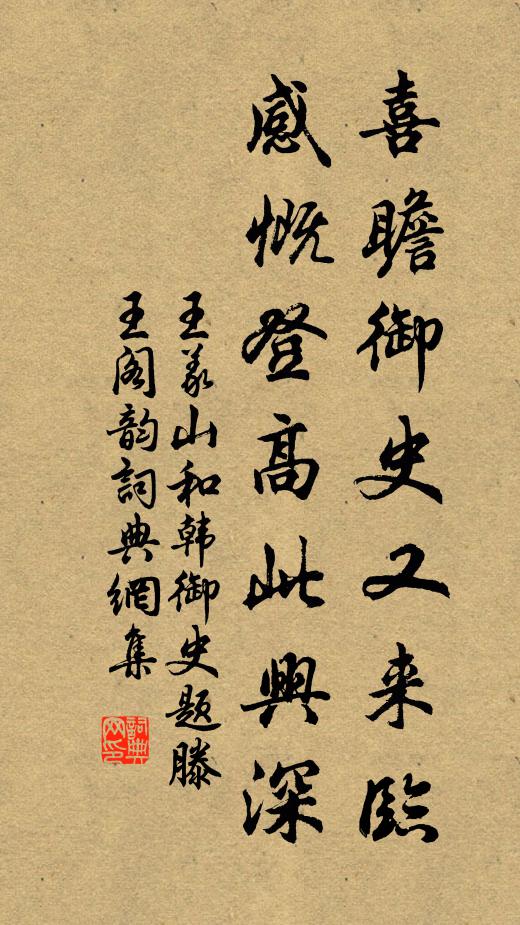 喜瞻御史又来臨
感慨登高此興深
王义山和韩御史题滕
王阁韵詞典網集
詞典
网印